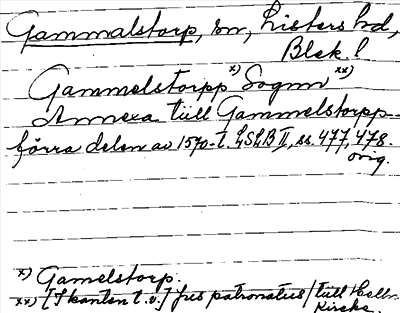 Gammalstorp, sn, Listers hd,
Blek. l.
Gammelstorpp x) Sognn xx)
Annexa tiill Gammelstorpp -
förra delen av 1570-t. LSLB II, ss. 477, 478.
orig.
x) Gamelstorp.
xx) [I kanten t. v.] Jus patronatus / tiill
Kircke.